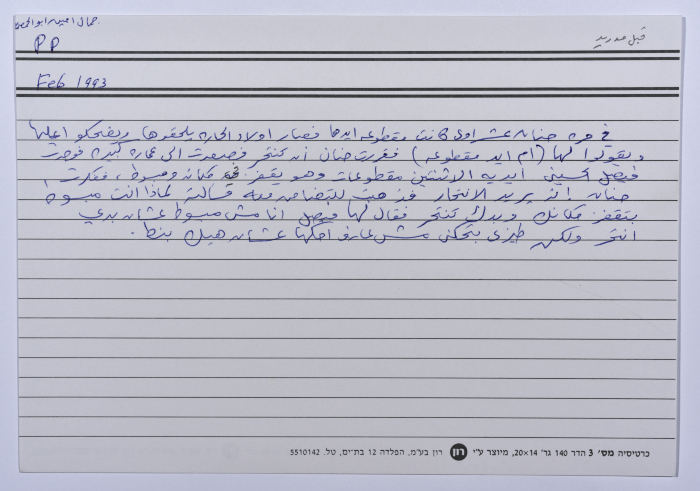 جمال امين ابو الحمص
PP
قبل مدريد
Feb 1993
في مره حنان عشراوي كانت مقطوعه ايدها فصار اولاد الحاره يلحقوها ويضحكو اعليها
ويقولوا لها (ام ايد مقطوعه) فقررت حنان أن تنتحر فصعدت الى عماره كبيره فوجدت
فيصل حسيني ايديه الاثنتين مقطوعات وهو يقفز مكانه ومبسوط، ففكرت
حنان انه يريد الانتحار فذهبت للتضامن معه فسألته لماذا انت مبسوط
بتقفز مكانك وبدك تنتحر فقال لها فيصل انا مش مبسوط عشان بدي
انتحر ولكن طيزي بتحكني مش عارف احكها عشان هيك بنط.
כרטיסיה מס' 3 הדר 140 גר' 20×14, מיוצר ע"י רון רון בע"מ, הפלדה 12 בת-ים, טל. 5510142